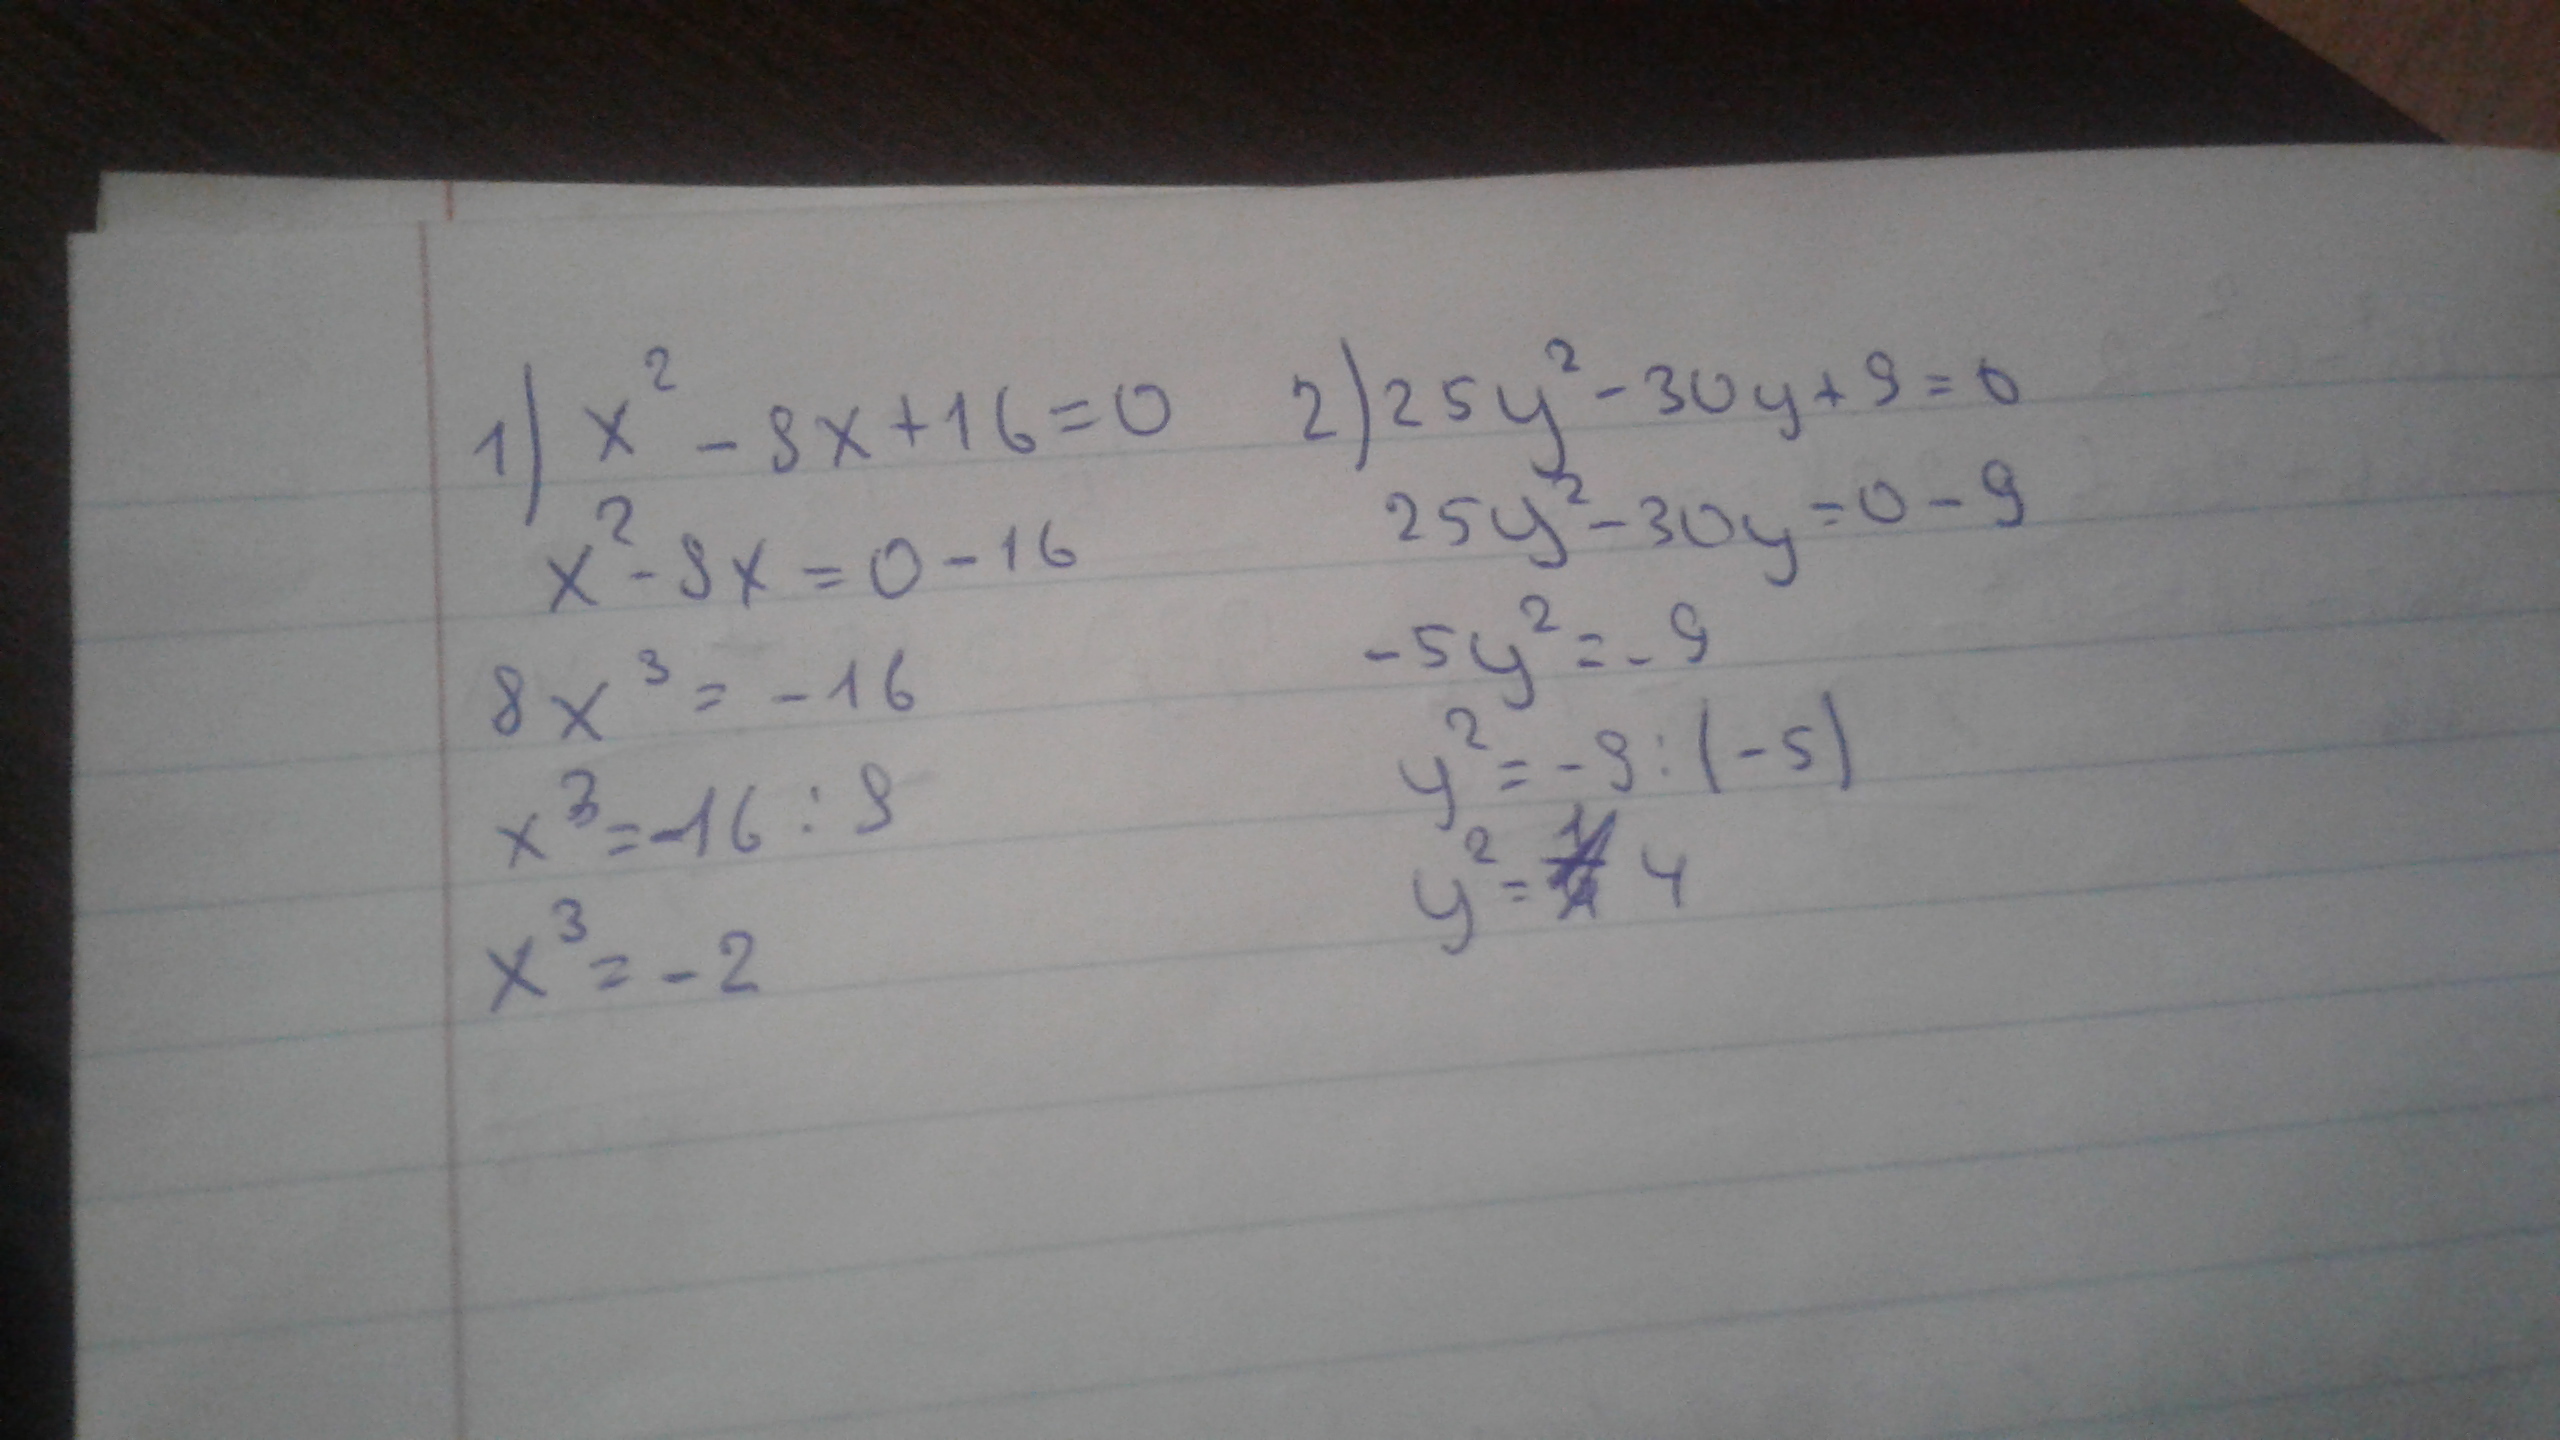 1) x² - 8x + 16 = 0
x² - 8x = 0 - 16
8x³ = - 16
x³ = -16 : 8
x³ = - 2
2) 25y² - 30y + 9 = 0
25y² - 30y = 0 - 9
-5y² = - 9
y² = - 9 : (-5)
y² = 4